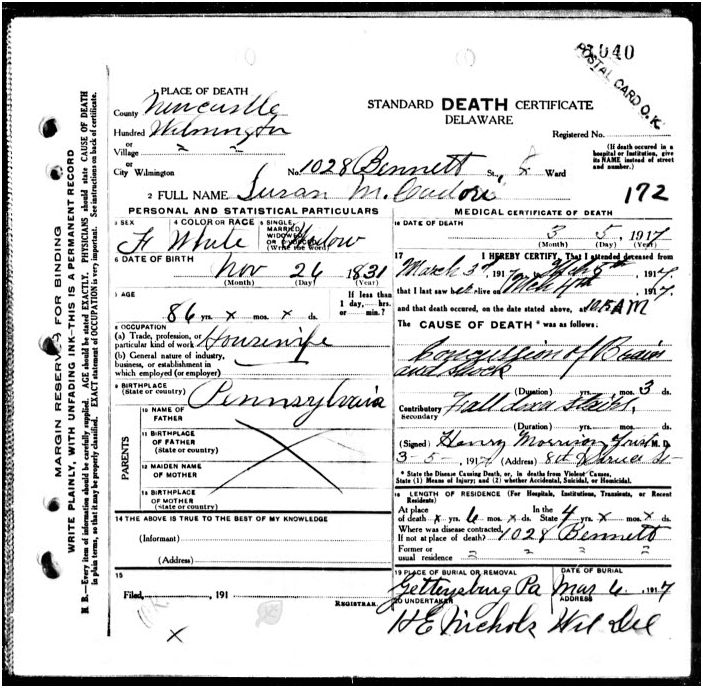 1040
POSTAL CARD O.K.
1 PLACE OF DEATH
County Newcastle
Hundred Wilmington
or
Village " "
or
City Wilmington
STANDARD DEATH CERTIFICATE
DELAWARE
Registered No.
(If death occured in a hospital or Institution, give its NAME instead of street and number.)
No. 1028 Bennett St., Ward
2 FULL NAME Susan M.
172
PERSONAL AND STATISTICAL PARTICULARS
3 SEX
F
4 COLOR OR RACE
White
5 SINGLE,
MARRIED
WIDOWED
OR DIVORCED
(Write the word)
Widow
6 DATE OF BIRTH
Nov 26 1831
(Month) (Day) (Year)
7 AGE
86 yrs. x mos. x ds.
If less than
1 day, hrs.
or min.?
8 OCCUPATION
(a) Trade, profession, or
particular kind of work Housewife
(b) General nature of industry,
business, or establishment in
which employed (or employer)
9 BIRTHPLACE
(State or country)
Pennsylvania
PARENTS
10 NAME OF
FATHER
11 BIRTHPLACE
OF FATHER
(State or country)
12 MAIDEN NAME
OF MOTHER
13 BIRTHPLACE
OF MOTHER
(State or country)
14 THE ABOVE IS TRUE TO THE BEST OF MY KNOWLEDGE
(Informant)
(Address)
15
Filed, 191
REGISTRAR
x
MEDICAL CERTIFICATE OF DEATH
16 DATE OF DEATH
3 5, 1917
(Month) (Day) (Year)
17 I HEREBY CERTIFY, That I attended deceased from
March 3rd, 1917, 1917,
that I last saw her alive on Mch 4th, 1917.
and that death occured, on the date stated above, at AM
The CAUSE OF DEATH * was as follows:
Concussion of Brain
and shock
(Duration) yrs. mos. 3 ds.
Contributory Fall down stairs.
Secondary
(Duration) yrs. mos. ds.
(Signed) Henry Morrison M. D.
3-5-, 1917 (Address) 8th Spruce St-
* State the Disease Causing Death, or, in deaths from Violent Causes,
State (1) Means of Injury; and (2) whether Accidental, Suicidal, or Homicidal.
18 LENGTH OF RESIDENCE (For Hospitals, Institutions, Transients, or Recent
Residents)
At place In the
of death x yrs. 6 mos. x ds. State 4 yrs. x mos. x ds.
Where was disease contracted,
If not at place of death? 1028 Bennett
Former or
usual residence " " " "
19 PLACE OF BURIAL OR REMOVAL
Gettysburg Pa
DATE OF BURIAL
Mar 6, 1917
20 UNDERTAKER
ADDRESS
HE Nichols Wil Del
MARGIN RESERVED FOR BINDING
WRITE PLAINLY, WITH UNFADING INK—THIS IS A PERMANENT RECORD
N. B.—Every item of information should be carefully supplied. AGE should be stated EXACTLY. PHYSICIANS should state CAUSE OF DEATH
in plain terms, so that it may be properly classified. EXACT statement of OCCUPATION is very important. See instructions on back of certificate.